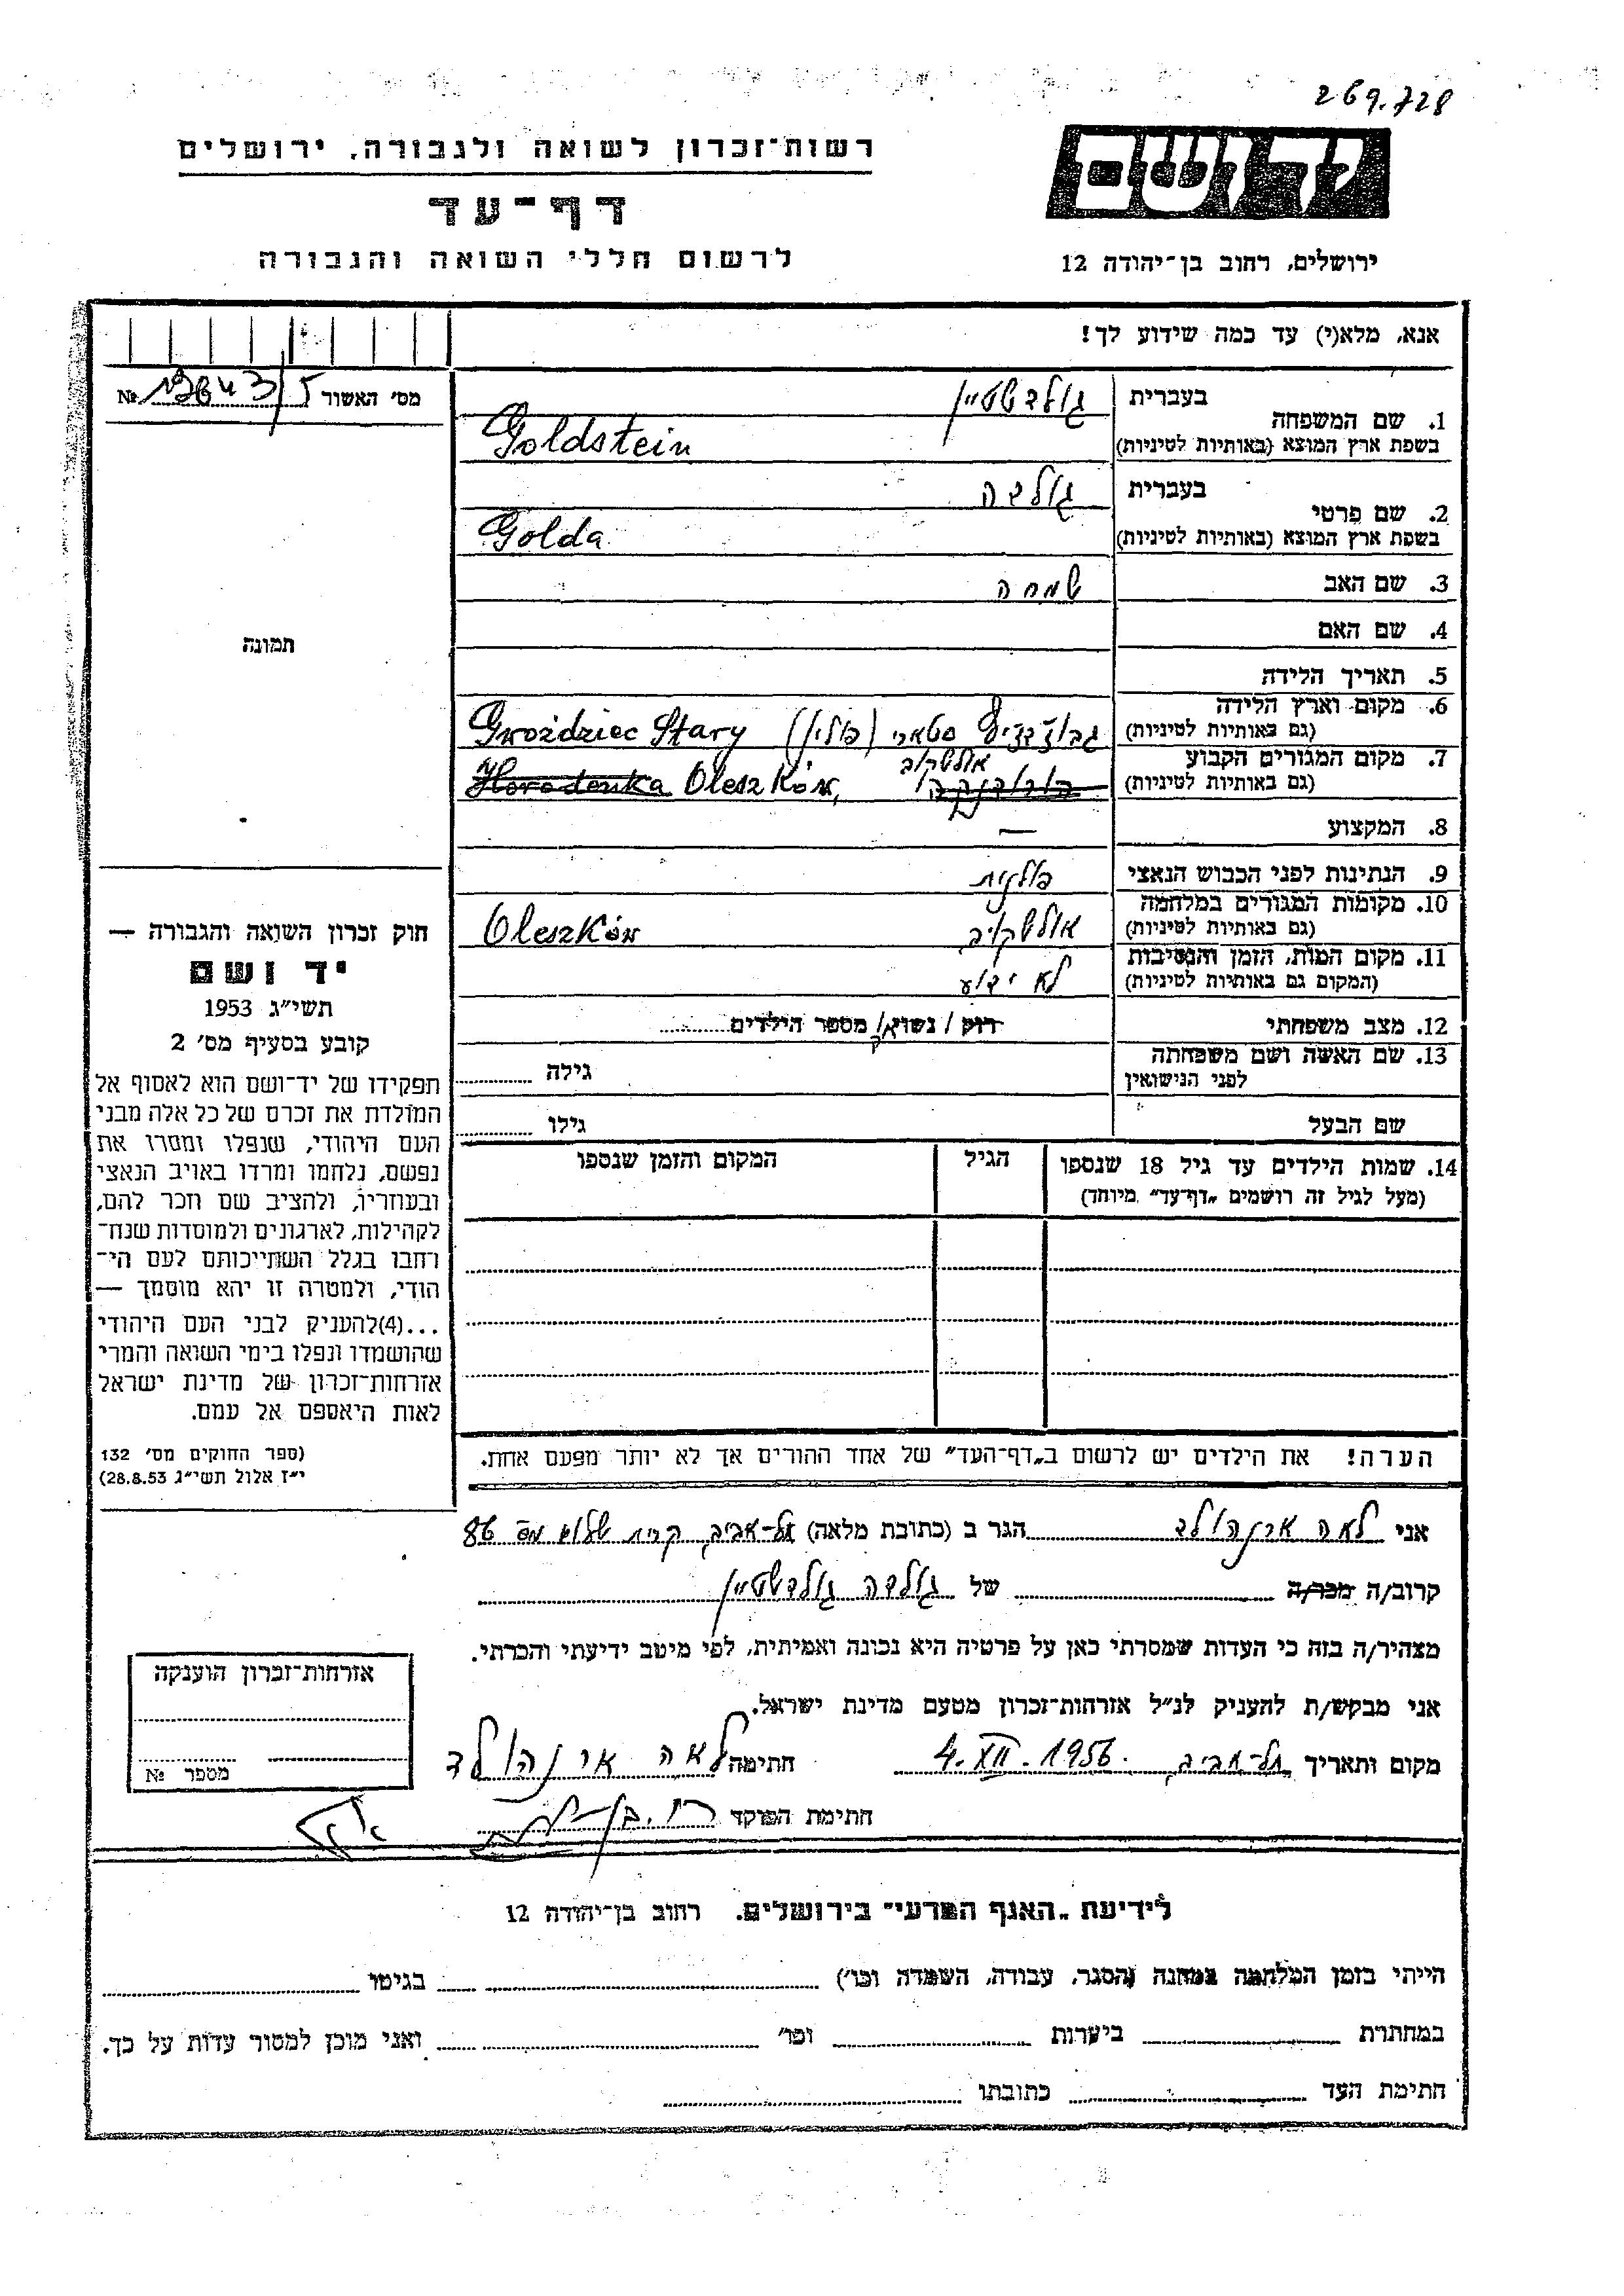 269.728
רשות־זכרון לשואה ולגבורה, ירושלים
יד ושם
דף־עד
לרשום חללי השואה והגבורה
ירושלים, רחוב בן־יהודה 12
אנא, מלא(י) עד כמה שידוע לך!
מס' האשור №
1. שם המשפחה
בעברית גולדשטיין
בשפת ארץ המוצא (באותיות לטיניות) Goldstein
2. שם פרטי
בעברית גולדה
בשפת ארץ המוצא (באותיות לטיניות) Golda
3. שם האב שמחה
4. שם האם
5. תאריך הלידה
6. מקום וארץ הלידה
(גם באותיות לטיניות) סטארי (פולין) Gwoździec Stary
7. מקום המגורים הקבוע אולשקוב
(גם באותיות לטיניות) הורודנקה Horodenka Oleszków,
8. המקצוע —
9. הנתינות לפני הכבוש הנאצי פולנית
10. מקומות המגורים במלחמה
(גם באותיות לטיניות) אולשקוב Oleszków
11. מקום המות, הזמן והנסיבות
(המקום גם באותיות לטיניות) לא ידוע
12. מצב משפחתי רוק / נשוי/ מספר הילדים
13. שם האשה ושם משפחתה
לפני הנישואין גילה
שם הבעל גילו
14. שמות הילדים עד גיל 18 שנספו הגיל המקום והזמן שנספו
(מעל לגיל זה רושמים „דף־עד" מיוחד)
הערה! את הילדים יש לרשום ב„דף־העד" של אחד ההורים אך לא יותר מפעם אחת.
תמונה
חוק זכרון השואה והגבורה —
יד ושם
תשי"ג 1953
קובע בסעיף מס' 2
תפקידו של יד־ושם הוא לאסוף אל
המולדת את זכרם של כל אלה מבני
העם היהודי, שנפלו ומסרו את
נפשם, נלחמו ומרדו באויב הנאצי
ובעוזריו, ולהציב שם וזכר להם,
לקהילות, לארגונים ולמוסדות שנח־
רחבו בגלל השתייכותם לעם הי־
הודי, ולמטרה זו יהא מוסמך —
...(4)להעניק לבני העם היהודי
שהושמדו ונפלו בימי השואה והמרי
אזרחות־זכרון של מדינת ישראל
לאות היאספם אל עמם.
(ספר החוקים מס' 132
י"ז אלול תשי"ג 28.8.53)
אני לאה אינהולד הגר ב (כתובת מלאה) תל־אביב, קרית שלום מס 86
קרוב/ה מכר/ה של גולדה גולדשטיין
מצהיר/ה בזה כי העדות שמסרתי כאן על פרטיה היא נכונה ואמיתית, לפי מיטב ידיעתי והכרתי.
אני מבקש/ת להעניק לנ"ל אזרחות־זכרון מטעם מדינת ישראל.
מקום ותאריך תל־אביב, 4.XII.1956. חתימה לאה אינהולד
חתימת הפוקד
אזרחות־זכרון הוענקה
מספר №
לידיעת „האגף המדעי" בירושלים. רחוב בן־יהודה 12
הייתי בזמן המלחמה במחנה (הסגר, עבודה, השמדה וכו') בגיטו
במחתרת ביערות וכו' ואני מוכן למסור עדות על כך.
חתימת העד כתובתו